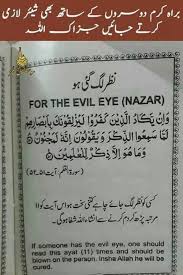 براہ کرم دوسروں کے ساتھ بھی شیئر لازمی
کرتے جائیں جزاک اللہ
نظر لگ گئی ہو
FOR THE EVIL EYE (NAZAR)
وَإِن يَكَادُ الَّذِينَ كَفَرُوا لَيُزْلِقُونَكَ بِأَبْصَارِهِمْ
لَمَّا سَمِعُوا الذِّكْرَ وَيَقُولُونَ إِنَّهُ لَمَجْنُونٌ ۝
وَمَا هُوَ إِلَّا ذِكْرٌ لِّلْعَالَمِينَ ۝
کسی کو نظر لگ جائے تو
مرتبہ پڑھ کر
If someone has the evil eye, one should
read this ayat (11) times and should be
blown on the person. Insha Allah he will be
cured.